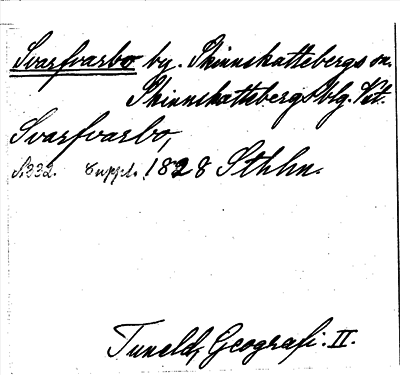 Svarfvarbo by. Skinnskattebergs sn.
Skinnskattebergs blg. Vst.
Svarfvarbo,
S. 232. Suppl. 1828 Sthlm.
Tuneld, Geografi. II.